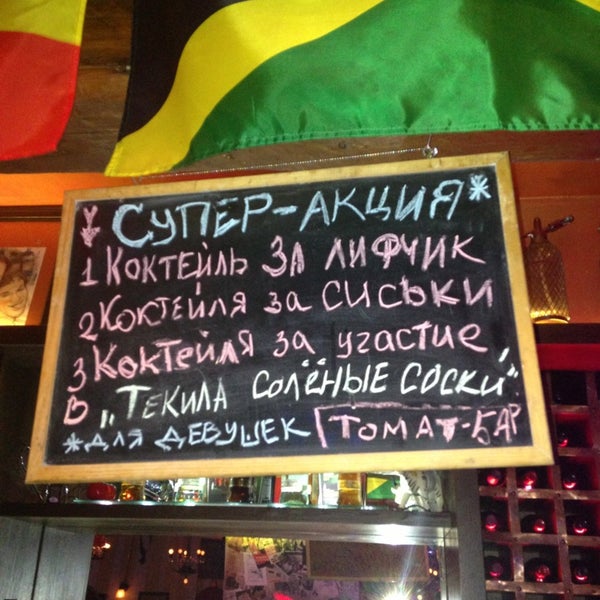 СУПЕР-АКЦИЯ*
1 КОКТЕЙЛЬ ЗА ЛИФЧИК
2 КОКТЕЙЛЯ ЗА СИСЬКИ
3 КОКТЕЙЛЯ ЗА УЧАСТИЕ
В „ТЕКИЛА СОЛЁНЫЕ СОСКИ"
*ДЛЯ ДЕВУШЕК ТОМАТ-БАР